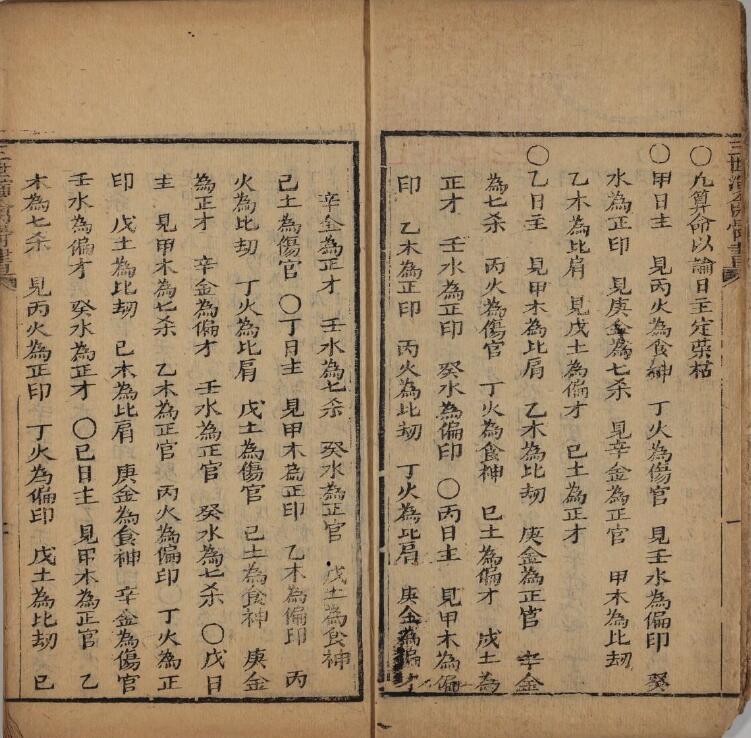 〇九算命以論日主定荣枯
〇甲日主 見丙火為食神 丁火為傷官 見壬水為偏印 癸
水為正印 見庚金為七杀 見辛金為正官 甲木為比刼
乙木為比肩 見戊土為偏才 己土為正才
〇乙日主 見甲木為比肩 乙木為比刼 庚金為正官 辛金
為七杀 丙火為傷官 丁火為食神 巳土為偏才 戊土為
正才 壬水為正印 癸水為偏印 〇丙日主 見甲木為偏
印 乙木為正印 丙火為比刼 丁火為比肩 庚金為偏才
辛金為正才 壬水為七杀 癸水為正官 戊土為食神
己土為傷官 〇丁日主 見甲木為正印 乙木為偏印 丙
火為比刼 丁火為比肩 戊土為傷官 己土為食神 庚金
為正才 辛金為偏才 壬水為正官 癸水為七杀 〇戊日
主 見甲木為七杀 乙木為正官 丙火為偏印 〇丁火為正
印 戊土為比刼 己木為比肩 庚金為食神 辛金為傷官
壬水為偏才 癸水為正才 〇己日主 見甲木為正官 乙
木為七杀 見丙火為正印 丁火為偏印 戊土為比刼 己